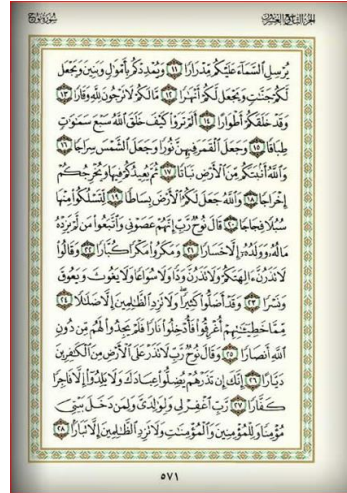 الجزء التاسع والعشرون
سورة نوح
يُرْسِلِ السَّمَاءَ عَلَيْكُمْ مِدْرَارًا ١١ وَيُمْدِدْكُمْ بِأَمْوَالٍ وَبَنِينَ وَيَجْعَلْ
لَكُمْ جَنَّاتٍ وَيَجْعَلْ لَكُمْ أَنْهَارًا ١٢ مَا لَكُمْ لَا تَرْجُونَ لِلَّهِ وَقَارًا ١٣
وَقَدْ خَلَقَكُمْ أَطْوَارًا ١٤ أَلَمْ تَرَوْا كَيْفَ خَلَقَ اللَّهُ سَبْعَ سَمَاوَاتٍ
طِبَاقًا ١٥ وَجَعَلَ الْقَمَرَ فِيهِنَّ نُورًا وَجَعَلَ الشَّمْسَ سِرَاجًا ١٦
وَاللَّهُ أَنْبَتَكُمْ مِنَ الْأَرْضِ نَبَاتًا ١٧ ثُمَّ يُعِيدُكُمْ فِيهَا وَيُخْرِجُكُمْ
إِخْرَاجًا ١٨ وَاللَّهُ جَعَلَ لَكُمُ الْأَرْضَ بِسَاطًا ١٩ لِتَسْلُكُوا مِنْهَا
سُبُلًا فِجَاجًا ٢٠ قَالَ نُوحٌ رَبِّ إِنَّهُمْ عَصَوْنِي وَاتَّبَعُوا مَنْ لَمْ يَزِدْهُ
مَالُهُ وَوَلَدُهُ إِلَّا خَسَارًا ٢١ وَمَكَرُوا مَكْرًا كُبَّارًا ٢٢ وَقَالُوا
لَا تَذَرُنَّ آلِهَتَكُمْ وَلَا تَذَرُنَّ وَدًّا وَلَا سُوَاعًا وَلَا يَغُوثَ وَيَعُوقَ
وَنَسْرًا ٢٣ وَقَدْ أَضَلُّوا كَثِيرًا وَلَا تَزِدِ الظَّالِمِينَ إِلَّا ضَلَالًا ٢٤
مِمَّا خَطِيئَاتِهِمْ أُغْرِقُوا فَأُدْخِلُوا نَارًا فَلَمْ يَجِدُوا لَهُمْ مِنْ دُونِ
اللَّهِ أَنْصَارًا ٢٥ وَقَالَ نُوحٌ رَبِّ لَا تَذَرْ عَلَى الْأَرْضِ مِنَ الْكَافِرِينَ
دَيَّارًا ٢٦ إِنَّكَ إِنْ تَذَرْهُمْ يُضِلُّوا عِبَادَكَ وَلَا يَلِدُوا إِلَّا فَاجِرًا
كَفَّارًا ٢٧ رَبِّ اغْفِرْ لِي وَلِوَالِدَيَّ وَلِمَنْ دَخَلَ بَيْتِيَ
مُؤْمِنًا وَلِلْمُؤْمِنِينَ وَالْمُؤْمِنَاتِ وَلَا تَزِدِ الظَّالِمِينَ إِلَّا تَبَارًا ٢٨
٥٧١